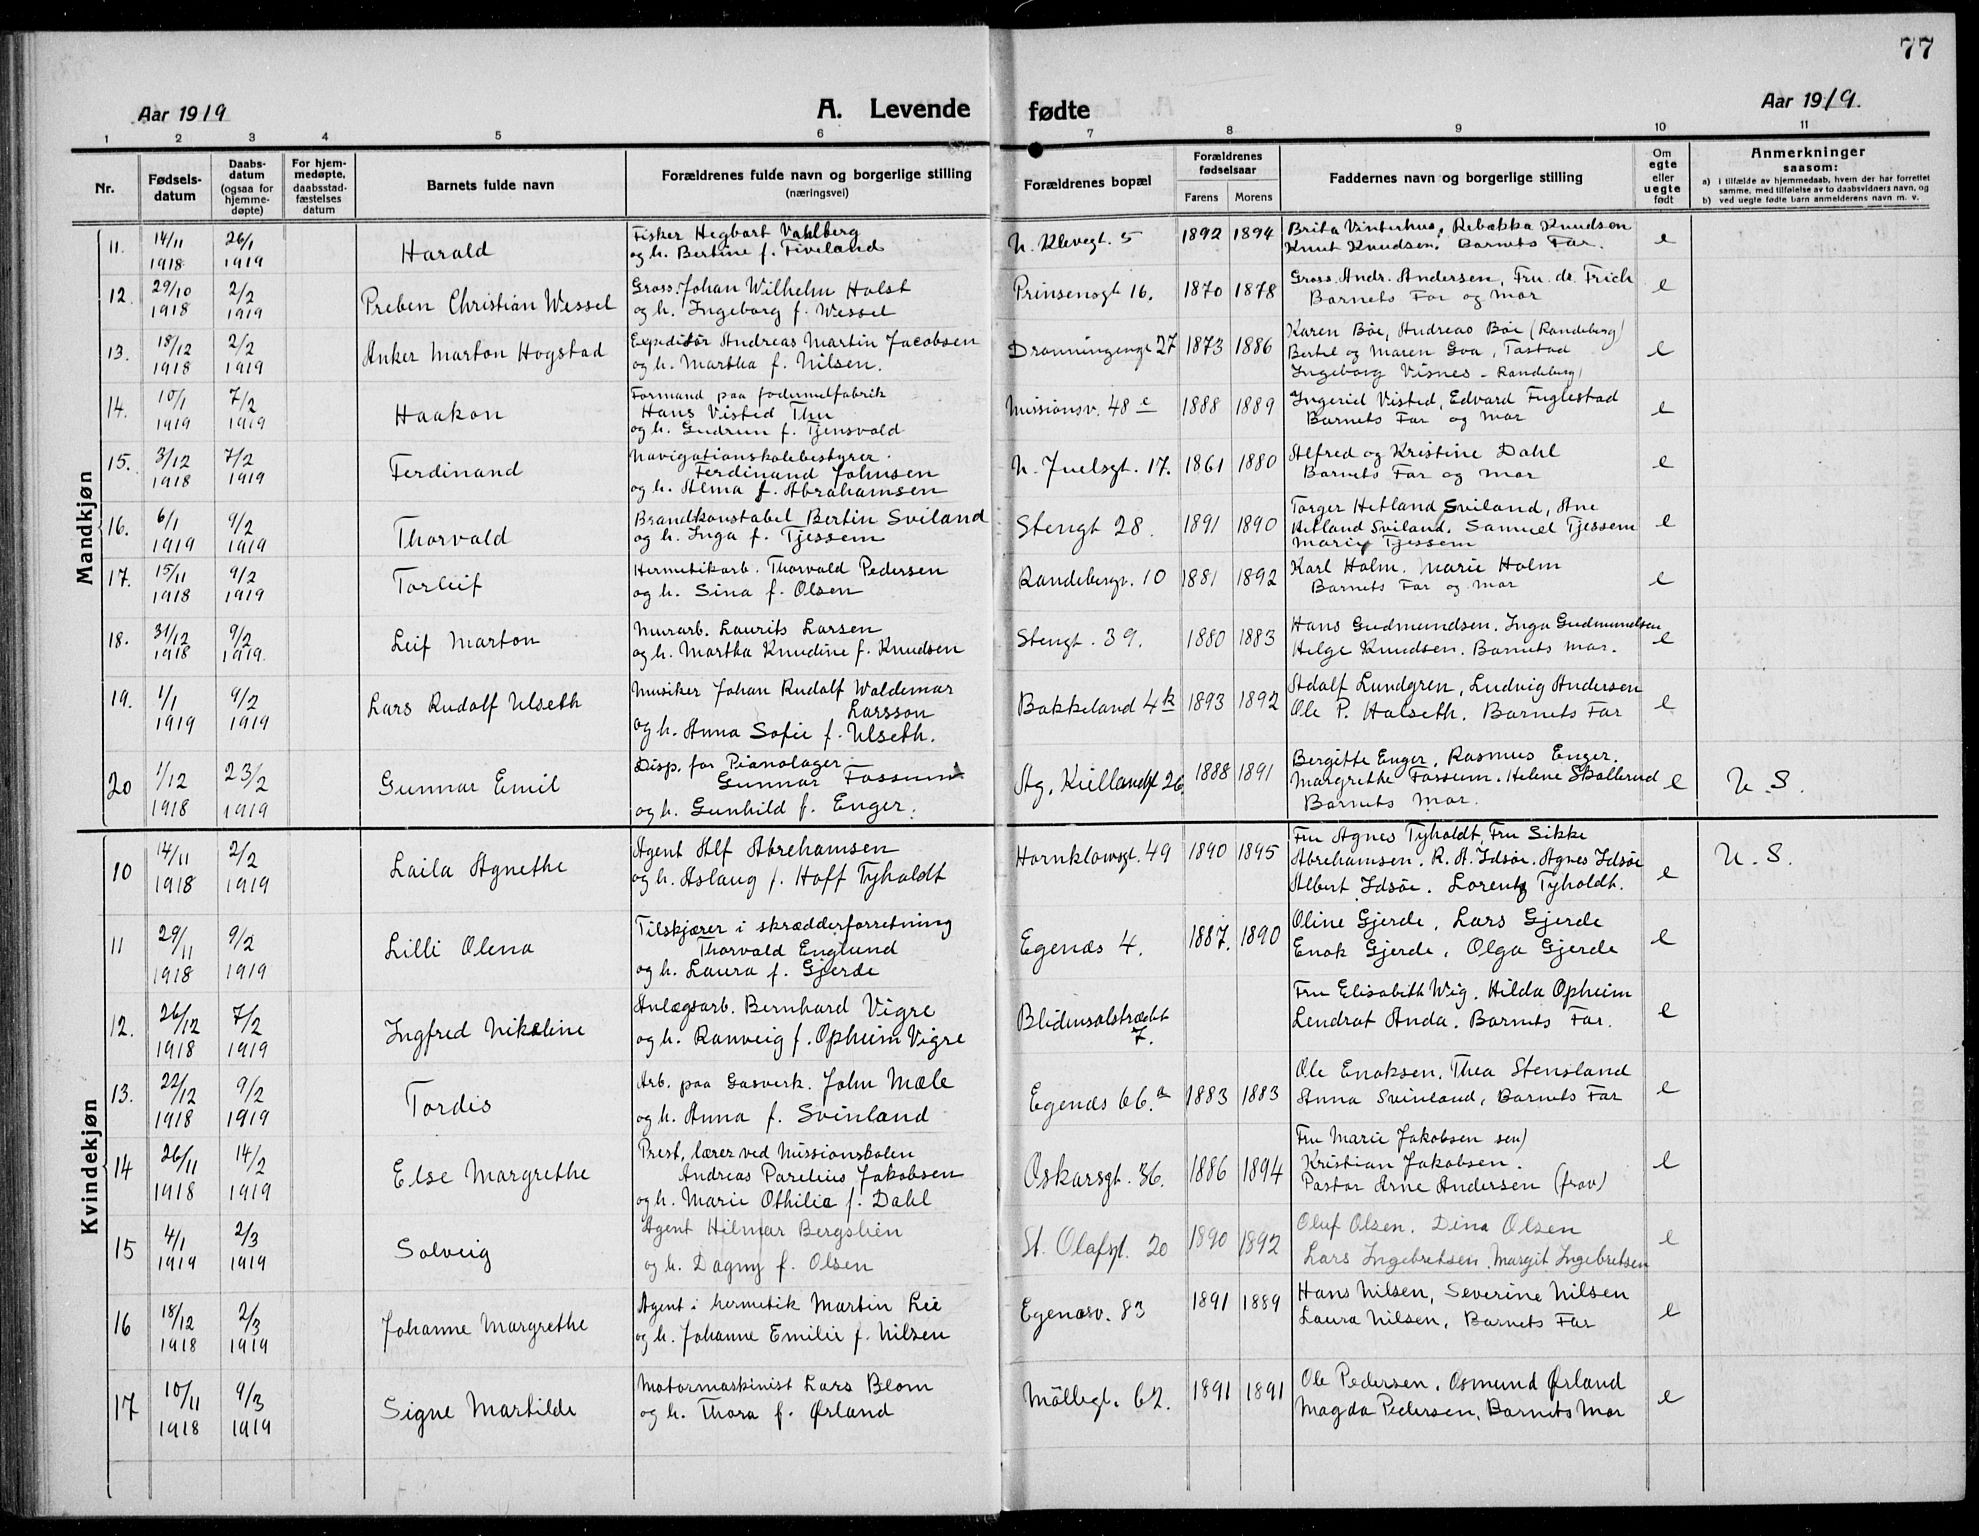 77
Aar 1919 A. Levende fødte Aar 1919.
1 2 3 4 5 6 7 8 9 10 11
Nr. Fødsels-datum Daabs-datum (ogsaa for hjemme-døpte) For hjem-medøpte, daabsstad-fæstelses datum Barnets fulde navn Forældrenes fulde navn og borgerlige stilling (næringsvei) Forældrenes bopæl Forældrenes fødselsaar Farens Morens Faddernes navn og borgerlige stilling Om egte eller uegte født Anmerkninger saasom:
a) i tilfælde av hjemmedaab, hvem der har forrettet samme, med tilføielse av to daabsvidners navn, og
b) ved uegte fødte barn anmelderens navn m. v.
Mandkjøn
11. 14/11 1918 26/1 1919 Harald
Fisker Hegbart Vahlberg
og h. Bertine f. Fiveland
N. Klevegt. 5 1892 1894
Brita Vinterhus, Rebekka Knudsen
Knut Knudsen. Barnets Far. e
12. 29/10 1918 2/2 1919 Preben Christian Wessel
Gross. Johan Wilhelm Holst
og h. Ingeborg f. Wessel
Prinsensgt 16. 1870 1878
Gross. Andr. Andersen, Fru. dr. Frich
Barnets Far og Mor e
13. 18/12 1918 2/2 1919 Anker Marton Hogstad
Expeditør Andreas Martin Jacobsen
og h. Martha f. Nilsen.
Dronningensgt 27 1873 1886
Karen Bøe, Andreas Bøe (Randeberg)
Bertel og Maren Goa, Tastad
Ingeborg Visnes - Randeberg) e
14. 10/1 1919 7/2 1919 Haakon
Formand paa fodermelfabrik
Hans Visted Thu
og h. Gudrun f. Tjensvold
Missionsv. 48 c 1888 1889
Ingerid Visted, Edvard Fuglestad
Barnets Far og Mor e
15. 3/12 1918 7/2 1919 Ferdinand
Navigationskolebestyrer.
Ferdinand Johnsen
og h. Alma f. Abrahamsen
N. Juelsgt. 17. 1861 1880
Alfred og Kristine Dahl
Barnets Far og Mor e
16. 6/1 1919 9/2 1919 Thorvald
Brandkonstabel Bertin Sviland
og h. Inga f. Tjessem
Stengt 28. 1891 1890
Torger Hetland Sviland, Ane
Hetland Sviland. Samuel Tjessem
Marie Tjessem e
17. 15/11 1918 9/2 1919 Torleif
Hermetikarb. Thorvald Pedersen
og h. Sina f. Olsen
Randebergt. 10 1881 1892
Karl Holm. Marie Holm
Barnets Far og Mor e
18. 31/12 1918 9/2 1919. Leif Marton
Murarb. Laurits Larsen
og h. Martha Knudine f. Knudsen
Stengt. 39. 1880 1883
Hans Gudmundsen. Inga Gudmundsen
Helge Knudsen. Barnets Mor. e
19. 1/1 1919 9/2 1919 Lars Rudolf Ulseth
Musiker Johan Rudolf Waldemar
Larsson
og h. Anna Sofie f. Ulseth.
Bakkeland 4 k 1893 1892
Adolf Lundgren, Ludvig Andersen
Ole P. Halseth. Barnets Far e
20 1/12 1918 23/2 1919 Gunnar Emil
Disp. for Pianolager.
Gunnar Fossum
og h. Gunhild f. Enger.
Ag. Kiellandsgt 26 1888 1891
Bergitte Enger, Rasmus Enger.
Margrethe Fossum. Helene Skollerud
Barnets Mor. e U. S.
Kvindekjøn
10 14/11 1918 2/2 1919 Laila Agnethe
Agent Alf Abrehamsen
og h. Aslaug f. Hoff Tyholdt
Hornklovesgt. 49 1890 1895
Fru Agnes Tyholdt, Fru Sikke
Abrehamsen. R. A. Idsøe. Agnes Idsøe
Albert Idsøe. Lorentz Tyholdt. e U. S.
11 29/11 1918 9/2 1919 Lilli Olena
Tilskjærer i skrædderforretning
Thorvald Englund
og h. Laura f. Gjerde
Egenæs 4. 1887. 1890
Oline Gjerde, Lars Gjerde
Enok Gjerde, Olga Gjerde e
12. 26/12 1918 7/2 1919 Ingfred Nikoline
Anlægsarb. Bernhard Vigre
og h. Ranveig f. Opheim Vigre
Blidensolstrædet 7.
Fru Elisabeth Wig. Hilda Opheim
Lendrat Anda. Barnets Far. e
13. 22/12 1918 9/2 1919 Tordis
Arb. paa Gasverk. John Mæle
og h. Anna f. Svinland
Egenæs 66. a 1883 1883
Ole Enoksen. Thea Stensland
Anna Svinland, Barnets Far e
14 26/11 1918 14/2 1919 Else Margrethe
Prest, lærer ved Missionskolen
Andreas Parelius Jakobsen
og h. Marie Othilia f. Dahl
Oskarsgt. 36. 1886 1894
Fru Marie Jakobsen sen)
Kristian Jakobsen.
Pastor Arne Andersen (frav) e
15 4/1 1919 2/3 1919 Solveig
Agent Hilmar Bergslien
og h. Dagny f. Olsen
St. Olafsgt. 20 1890 1892
Oluf Olsen. Dina Olsen
Lars Ingebretsen. Margit Ingebretsen e
16 18/12 1918 2/3 1919 Johanne Margrethe
Agent i hermetik Martin Lie
og h. Johanne Emilie f. Nilsen
Egenæsv. 83 1891 1889
Hans Nilsen, Severine Nilsen
Laura Nilsen, Barnets Far e
17 10/11 1918 9/3 1919 Signe Martilde
Motormaskinist Lars Blom
og h. Thora f. Ørland
Möllegt. 62. 1891 1891
Ole Pedersen. Osmund Ørland
Magda Pedersen, Barnets Mor e